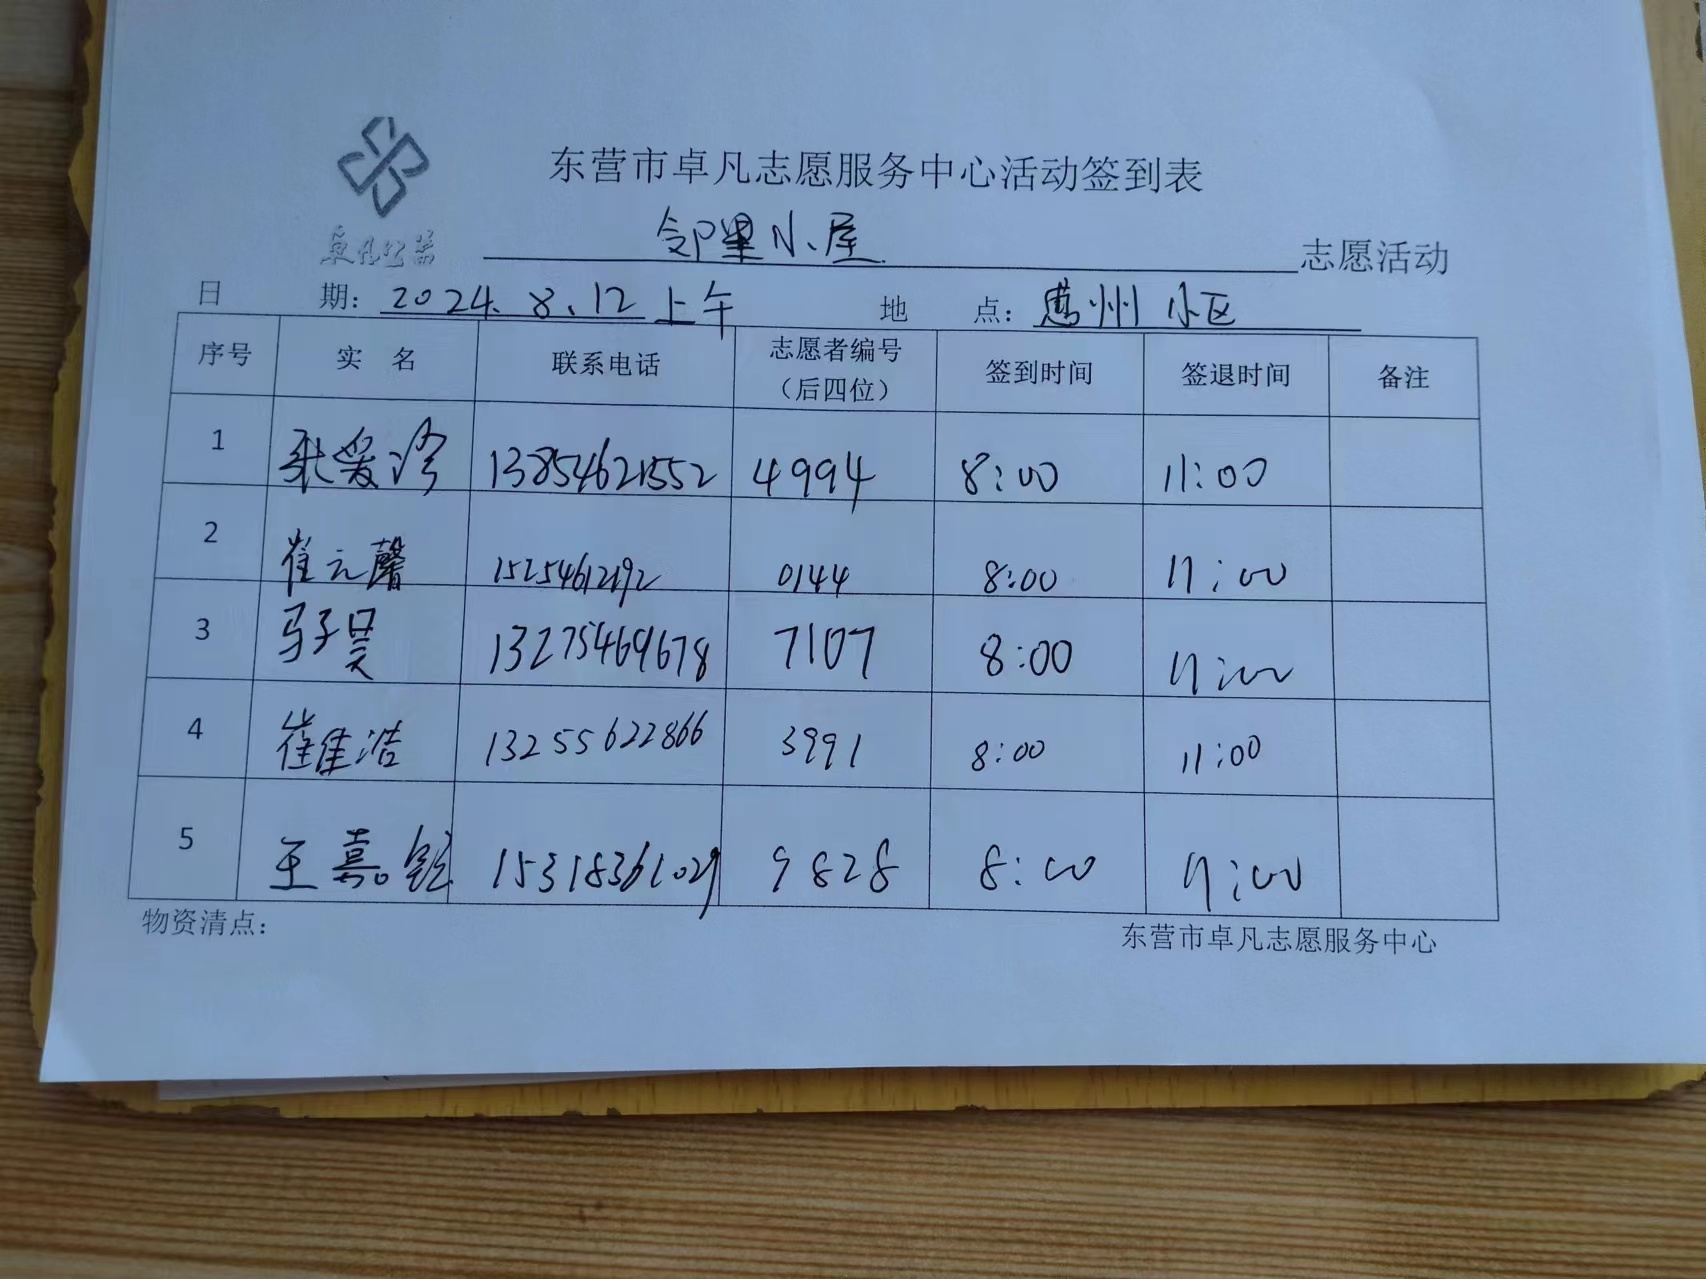 东营市卓凡志愿服务中心活动签到表
卓凡公益
邻里小屋 志愿活动
日 期：2024.8.12上午 地 点：惠州小区
序号 实名 联系电话 志愿者编号（后四位） 签到时间 签退时间 备注
1 13854621552 4994 8:00 11:00
2 崔元馨 15254612192 0144 8:00 11:00
3 马子昊 13275469678 7107 8:00 11:00
4 崔佳浩 13255622866 3991 8:00 11:00
5 王嘉铉 15318361029 9828 8:00 11:00
物资清点： 东营市卓凡志愿服务中心